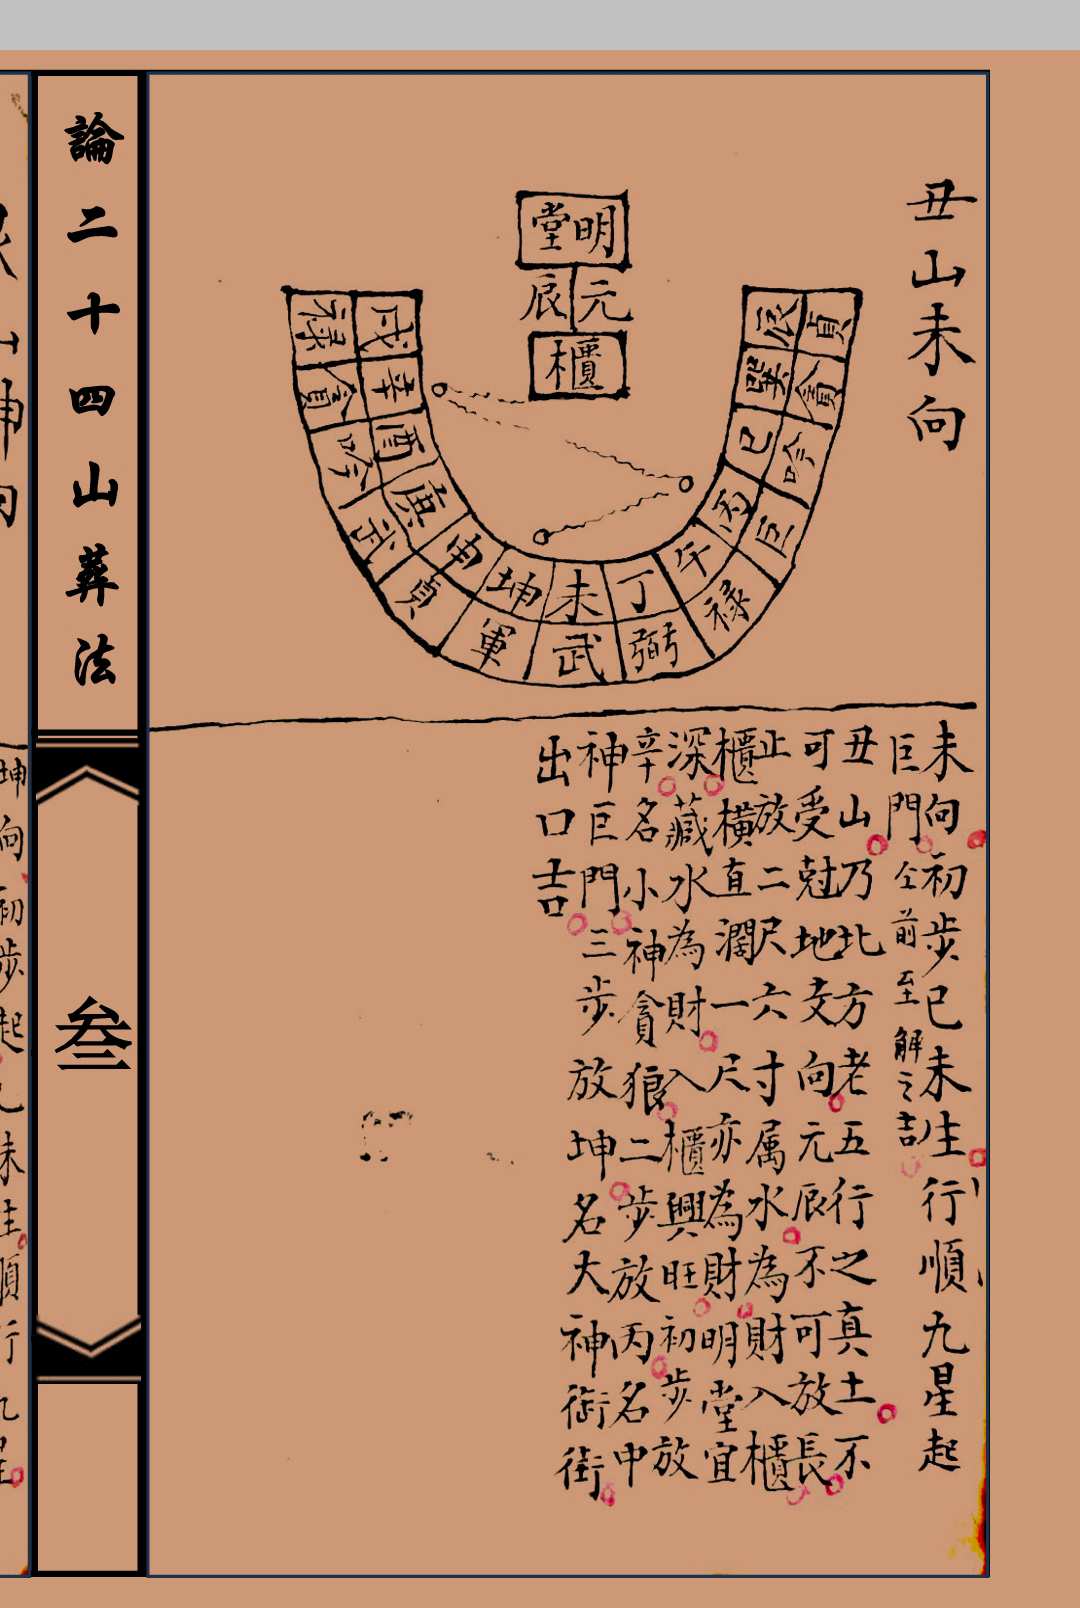 丑山未向
明堂
元辰
櫃
戌 辛 酉 庚 申 坤 未 丁 午 丙 巳 巽 辰
祿 貪 吟 武 貞 軍 武 弼 祿 巨 吟 貪 貞
未向初步巳未生行順九星起
巨門仝前至解之吉
丑山乃北方老五行之真土不
可受尅地支向元辰不可放長
止放二尺六寸属水為財入櫃
櫃橫直濶一尺亦為財明堂宜
深藏水為財入櫃興旺初步放
辛名小神貪狼二步放丙名中
神巨門三步放坤名大神衙街
出口吉
論二十四山葬法
叁
坤向初步起
未生順行九星